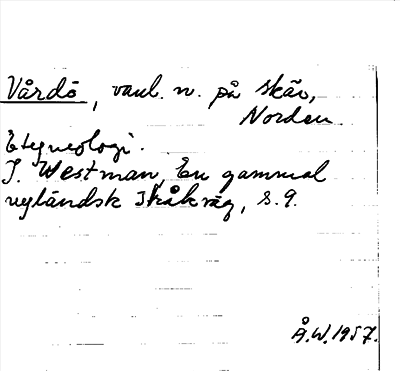 Vårdö, vanl. n. på skär,
Norden.
Etymologi.
I. Westman, En gammal
nyländsk skåkväg, s. 9.
Å.W. 1957.